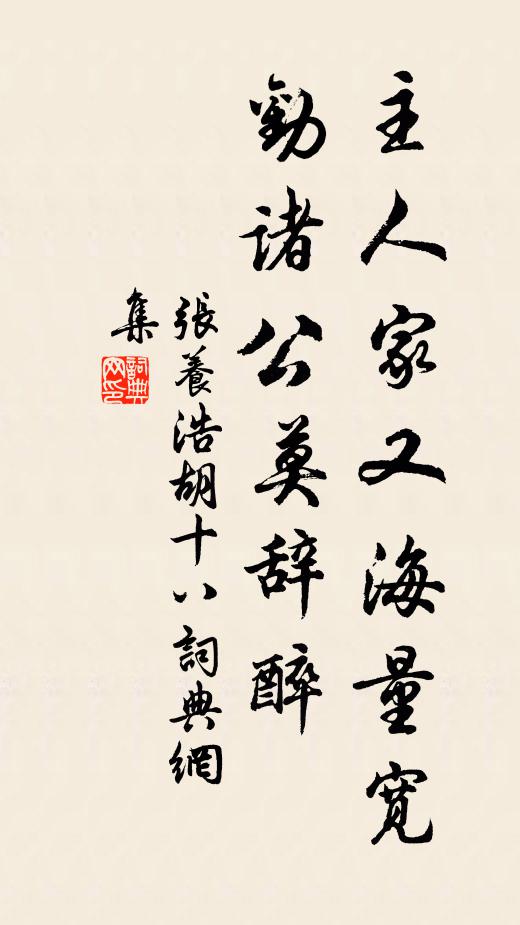 主人家又海量寬
勸諸公莫辞醉
張養浩胡十八詞典網
集
詞典
网印